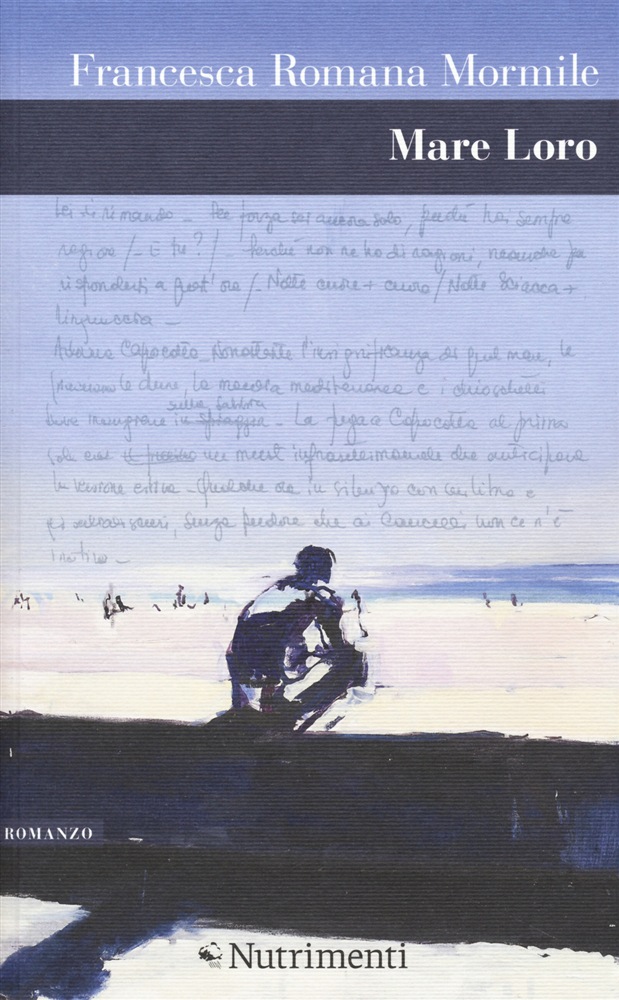 Francesca Romana Mormile
Mare Loro
Lei si rimando _ Per forza sei ancora solo, perché hai sempre
ragione /_ E tu? /_ Perché non ne ho di ragioni, neanche per
risponderti a quest'ora /_ Notte cuore + cuore / Notte
linguaccia _
Capocotta _ Nonostante l'insignificanza di quel mare, le
le dune, la macchia mediterranea e i chioschetti
sulla sabbia
in spiaggia _ La pesca a Capocotta al primo
sole era un must infrasettimanale che anticipava
la versione estiva _ Qualche da in silenzio con un libro e
senza pudore che ai Cancelli non ce n'è
ROMANZO
Nutrimenti